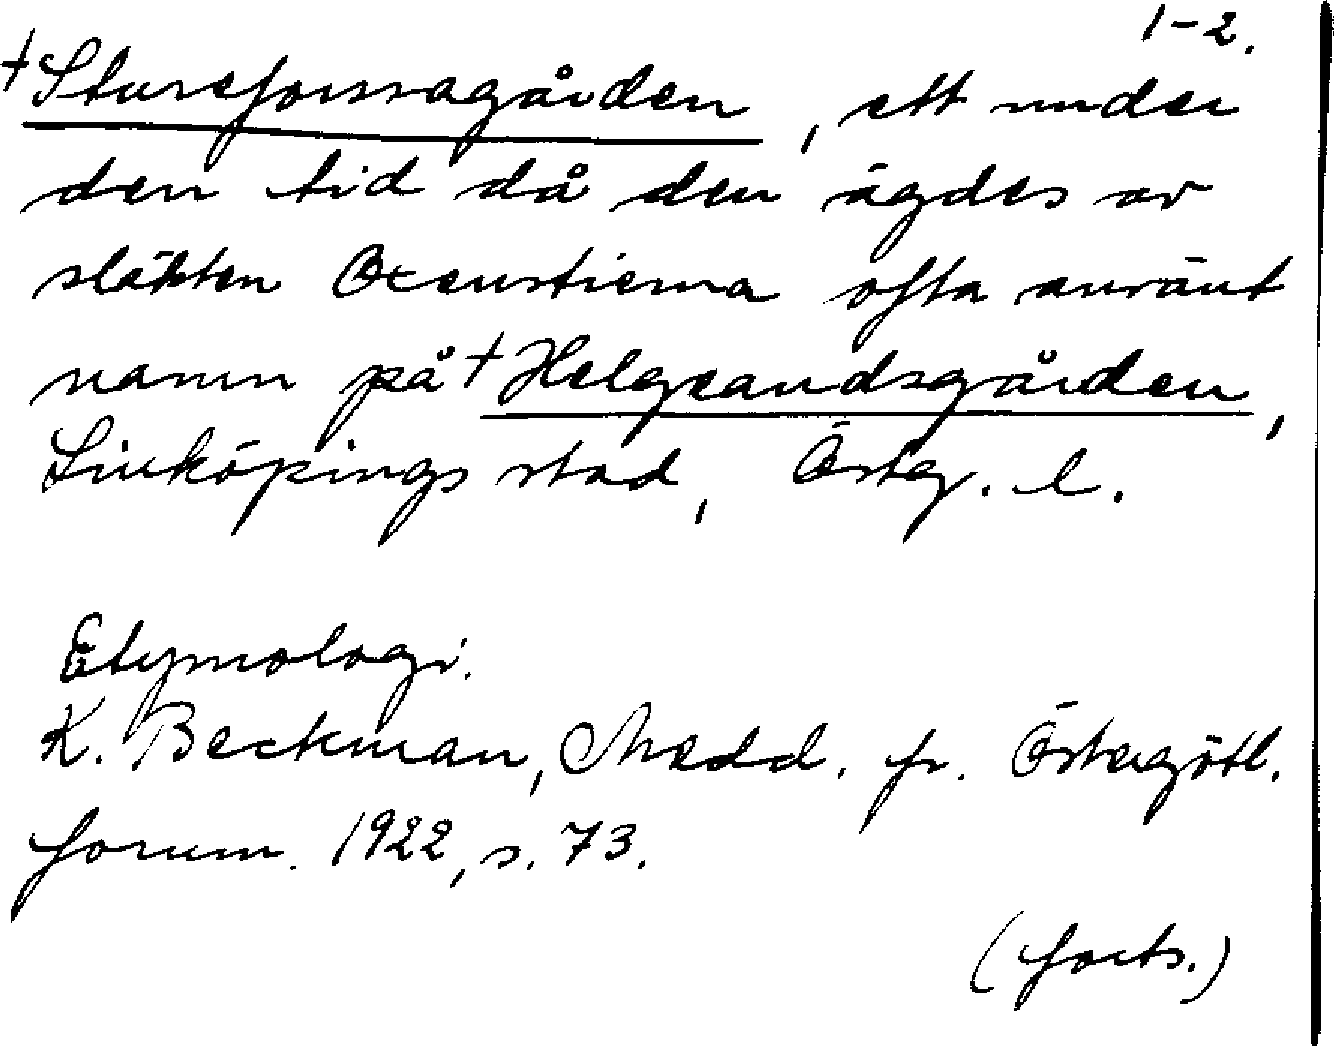 1-2.
†Stureforssagården, ett under
den tid då den ägdes av
släkten Oxenstierna ofta använt
namn på †Helgeandsgården,
Linköpings stad, Österg. l.
Etymologi.
K. Beckman, Medd. fr. Östergötl.
fornm. 1922, s. 73.
(forts.)